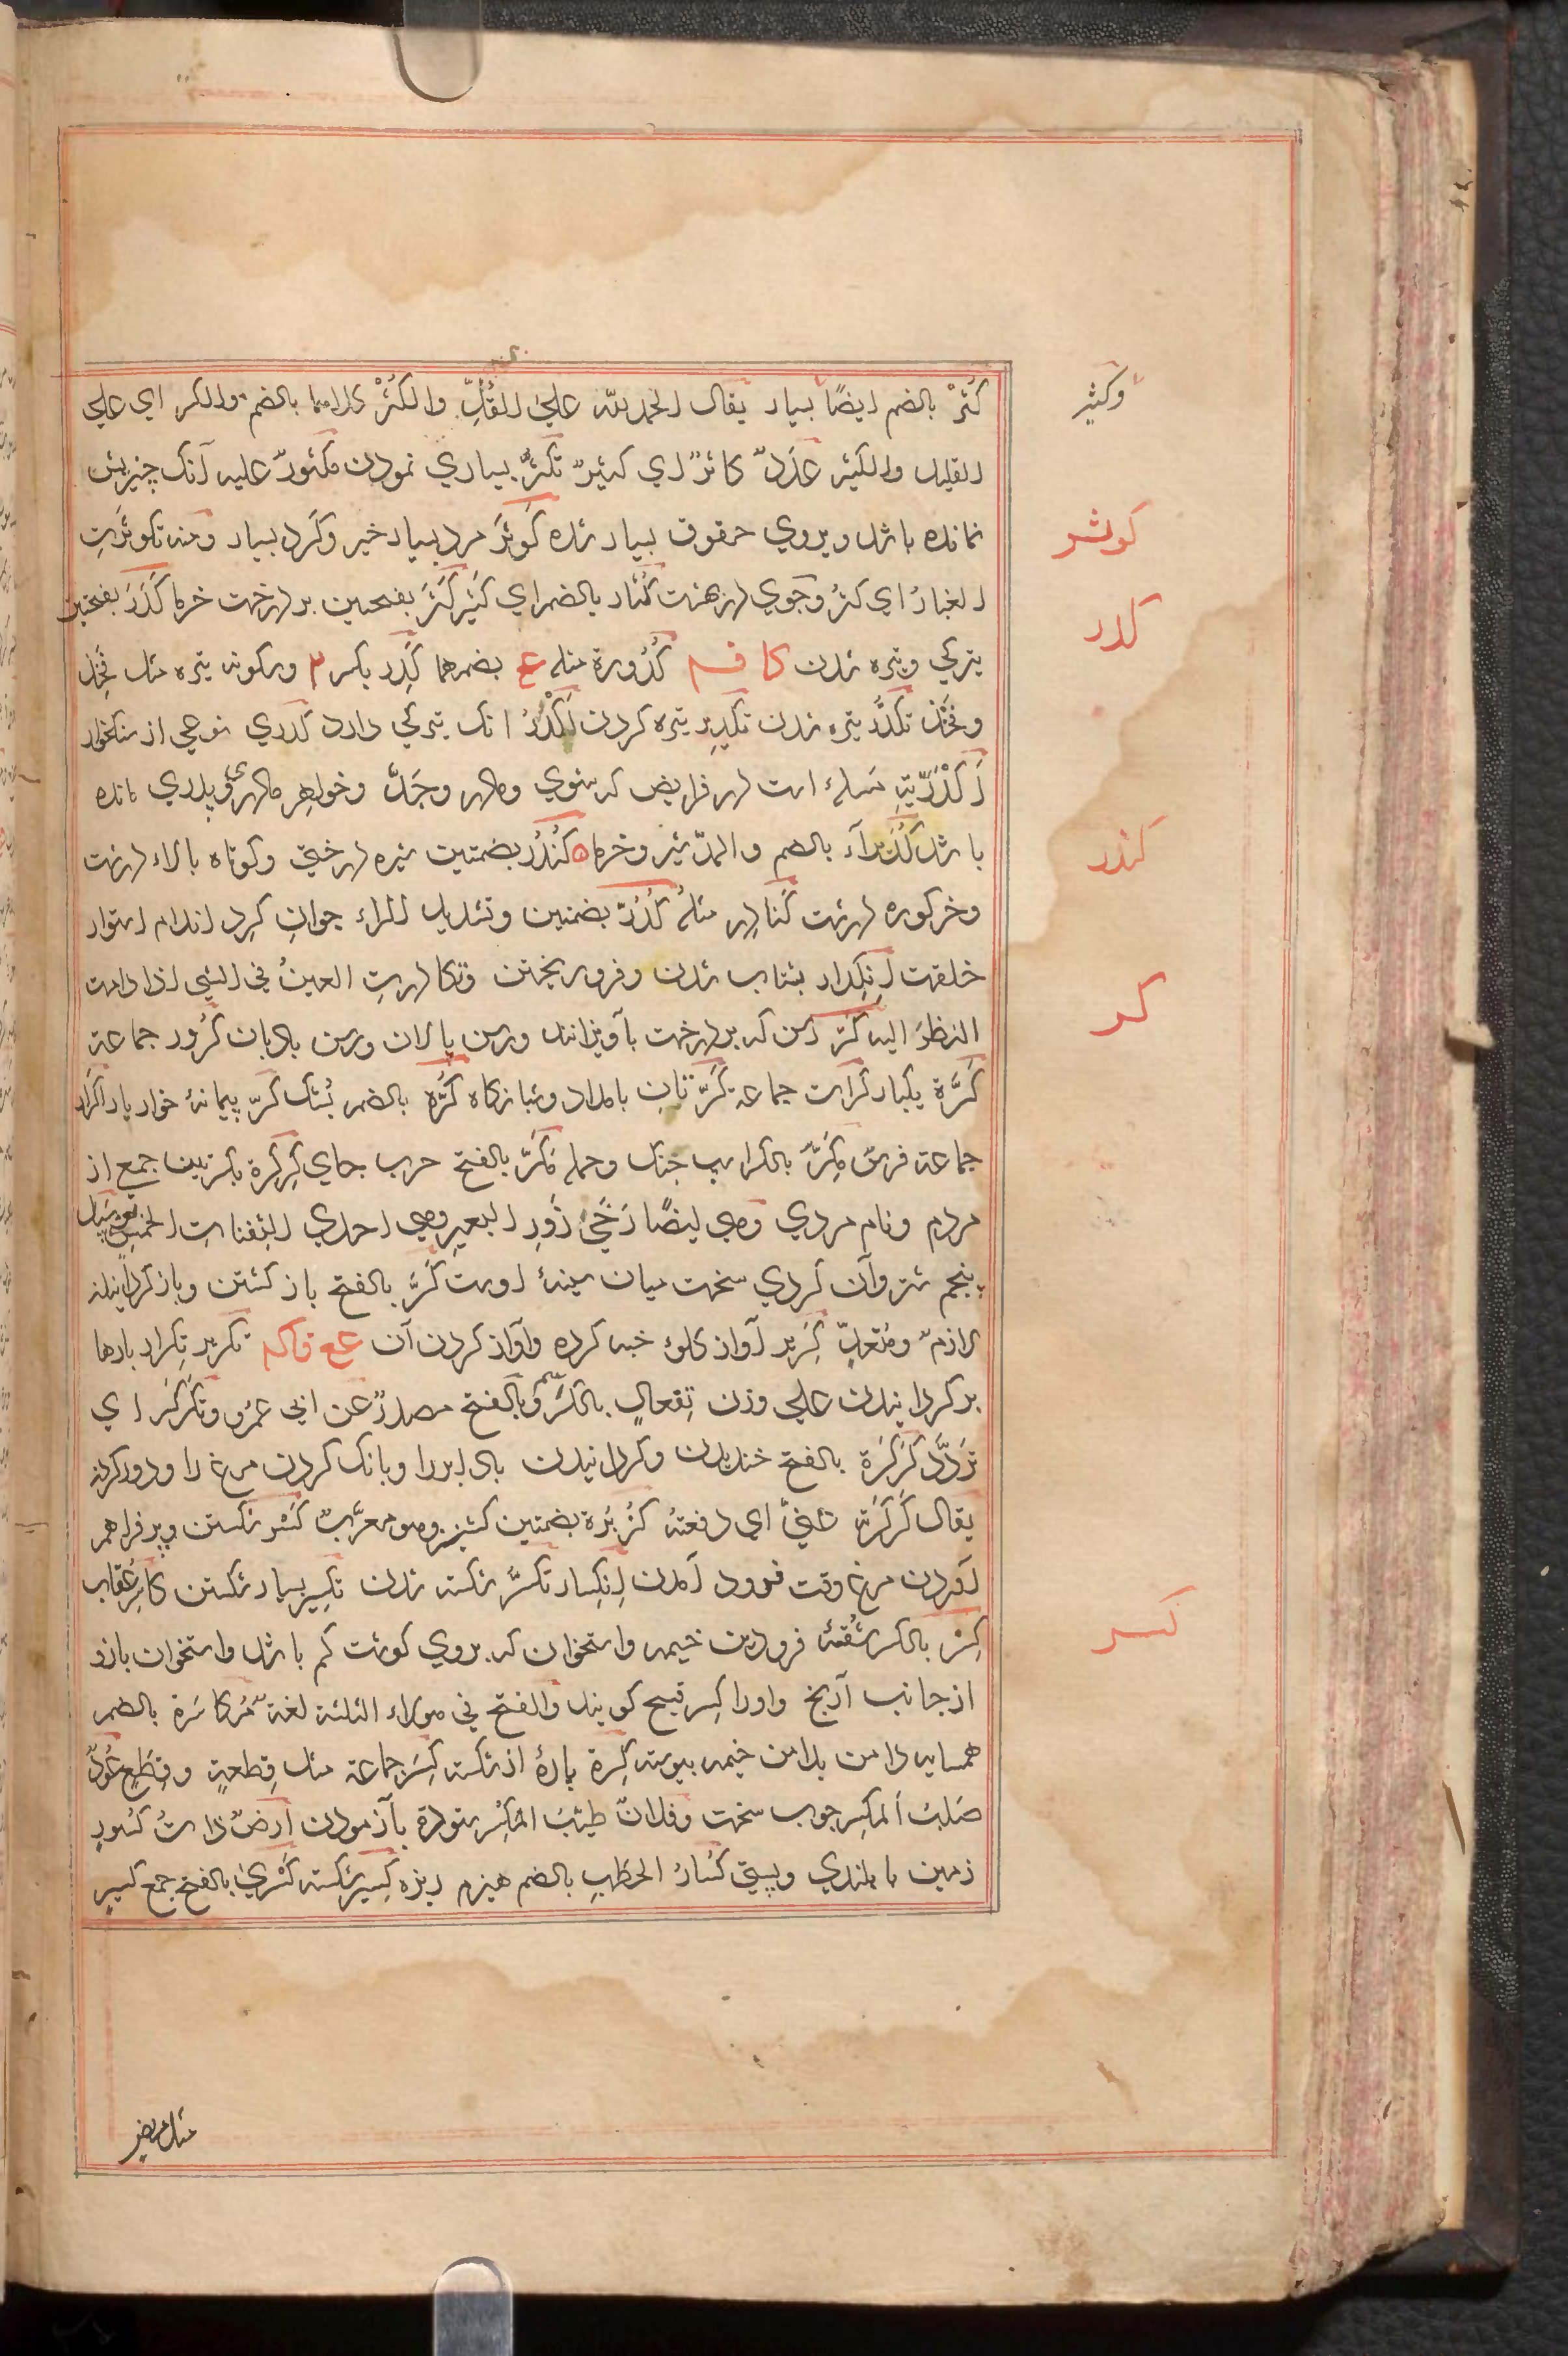 وکثیر
کُثْرٌ بالضم ایضًا بسیار یقال الحمد لله علی القُلِّ والکُثْرِ کلاهما بالضم والکسر ای علی
القلیل والکثیر عَدَدٌ کاثرٌ ای کثیرٌ تکثّر بسیاری نمودن مکثورٌ علیه آنک چیزیش
نمانده باشد و بروی حقوق بسیار شده کَوثَر مرد بسیار خیر وکرد بسیار ومنه تکوثرَتِ
کوثر
الغبارُ ای کثرُ وجوی در بهشت کُثار بالضم ای کَثیر کَثَر بفتحتین بر درخت خرما کَدَر بفتحتین
کدر
تیرکی وتیره شدن کا ف م کُدُورة مثله ع بضمهما کَدِر بکسر ۲ وسکونه تیره مثل فَخِذ
وفَخْذ تکدُّر تیره شدن تکدیر تیره کردن اَکْدَرُ انک تیرکی دارد کُدری نوعی از سنکخوار
اَکْدَرِیّة مسلهٔ است در فرایض که شوی ومادر وجَدّ وخواهر مادری وپدری مانده
باشد کُدَیراء بالضم والمدّ شیر وخرما ه کُنْدُر بضمتین شیره درختی وکوتاه بالاء درشت
کندر
وخرکوره درشت کُنادِر مثلهُ کُدُرّ بضمتین وتشدید الراء جوان کِرد اندام استوار
خلقت اِنکِدار بشتاب شدن وفرو ریختن وتکادرتِ العینُ فی الشی اذا دامت
النظرَ الیه کَرّ رسن که بر درخت بآویزانند ورسن پالان ورسن بادبان کُرُور جماعة
کر
کَرَّة یکبار کرّات جماعة کَرّتان بامداد وشبانکاه کُرَّه بالضم بُشک کُرّ پیمانهٔ خوار بار اَکْرار
جماعة فرس مِکَرّ بالکسر اسب جنک وحمله مَکَرّ بالفتح حرب جای کِرکِرة بکسرتین جمع از
مردم ونام مردی وهی ایضًا رَحَی زَورِ البعیر وهی احدی الثفنات الخمس یعنی سَبَل
پنجم شتر وآن کردی سخت میان سینهٔ اوست کَرَّ بالفتح باز کشتن وباز کردانیدن
لازمٌ ومُتَعدٍّ کَریر آواز کلوء خبه کرده وآواز کردن آن عع فاکم تکریر تکرار بارها
بر کردانیدن علی وزن تفعال بالکسر وبالفتح مصدرٌ عن ابی عمرو وتَکَرْکَر ای
تردَّد کَرْکَرَة بالفتح خندیدن وکردانیدن باد ابر را وبانک کردن مرغ را ودور کردن
یقال کَرْکَرْتُه عنّی ای دفعتهُ کُزبُرة بضمتین کشنیز وهو معرّبٌ کَسْر شکستن وپر فراهم
آوردن مرغ وقت فرود آمدن اِنکِسار تکسُّر شکسته شدن تکسیر بسیار شکستن کاسِر عُقاب
کِسْر بالکسر شُقّهٔ فرودین خیمه واستخوان که بروی کوشت کم باشد واستخوان بازو
کسر
از جانب آرنج واورا کِسر قبیح کویند والفتح فی هولاء الثلثة لغةٌ مُکاسَرة بالضم
همسایه دامن بدامن خیمه پیوسته کِسْرة پارهٔ از شکسته کِسَر جماعة مثل قِطعةٍ وقِطَعٍ عُودٌ
صَلبُ المَکسِر چوب سخت وفلانٌ طیّبُ المَکسِر ستوده بآزمودن ارضٌ ذاتُ کُسورٍ
زمین با بلندی وپستی کُسارُ الحَطَبِ بالضم هیزم ریزه کَسیر شکسته کَسْریٰ بالفتح جمع کسیر
مثل مریض